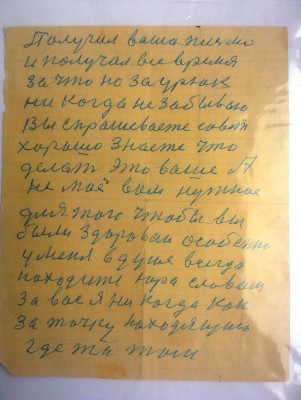 Получил ваша письмо
и получал все время
за что но за урюк
ни когда не забываю
Вы спрашиваете совет
хорошо знаете что
делат это ваше А
не моё вам нужное
для того чтобы вы
были здоровы особенно
у меня в душе всегда
находите пара словам
за вас я ни когда как
за точку находящись
где то там